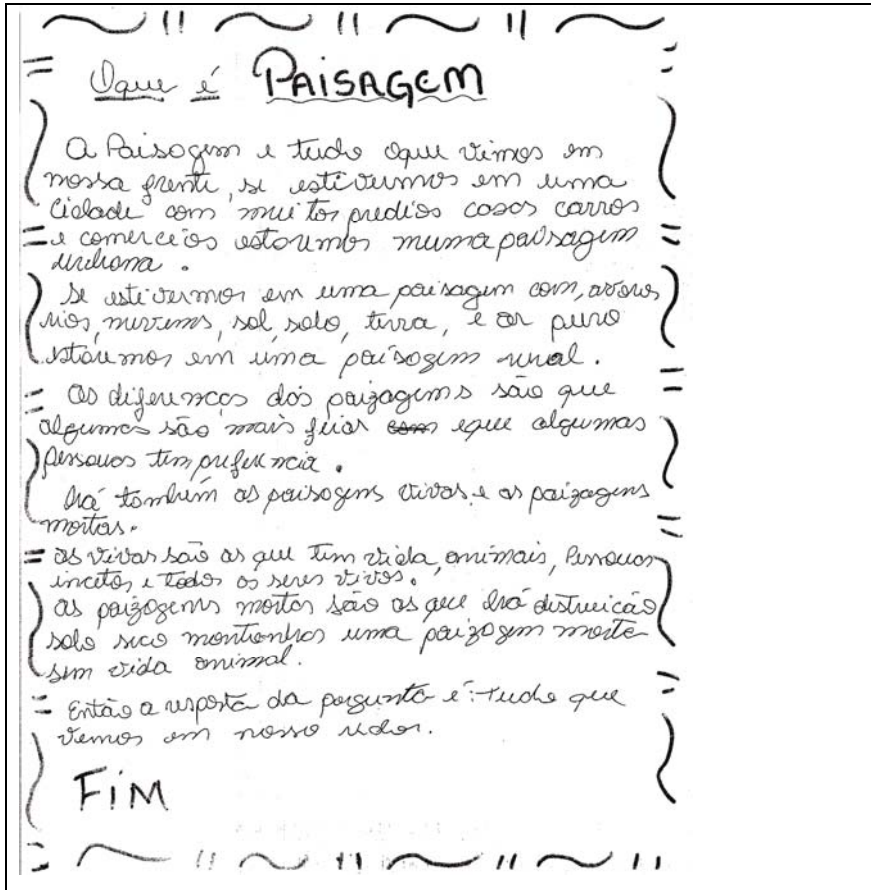 Oque é PAISAGEM
A Paisagem e tudo oque vimos em
nossa frente, se estivermos em uma
cidade com muitos predios casas carros
e comercios estaremos numa paisagem
urbana.
Se estivermos em uma paisagem com, arvores
rios, nuvems, sol, solo, terra, e ar puro
estaremos em uma paisagem rural.
As diferenças dos paizagems são que
algumas são mais feias eque algumas
pessouas tem preferencia.
há também as paisagens vivas e as paizagens
mortas.
as vivas são as que tem vida, animais, Pessouas
incetos e todos os seres vivos.
as paizagens mortas são as que há distruicão
solo seco montanhas uma paizagem morta
sem vida animal.
Então a resposta da pergunta é: tudo que
vemos em nosso redor.
FiM